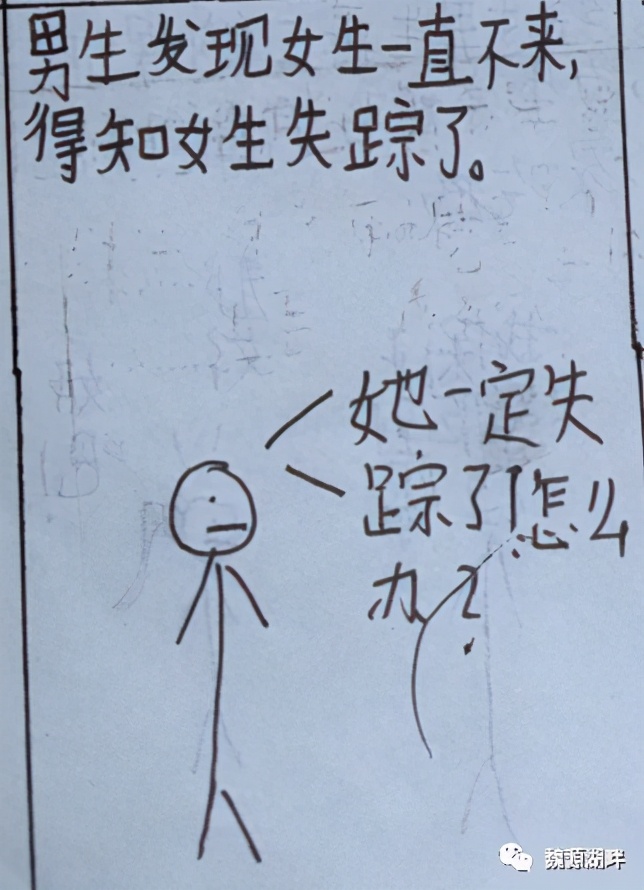 男生发现女生一直不来,
得知女生失踪了。
她一定失
踪了!怎么
办?
魏源湖畔